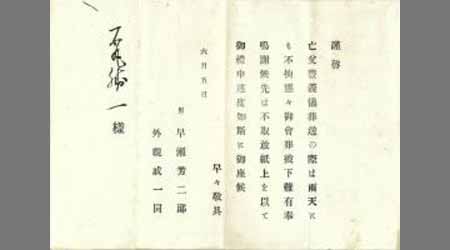 謹啓
亡父豊義儀葬送の際は雨天に
も不拘態々御會葬被下難有奉
鳴謝候先は不取敢紙上を以て
御禮申述度如斯に御座候
早々敬具
六月五日
早瀬芳二郎
外親戚一同
一樣